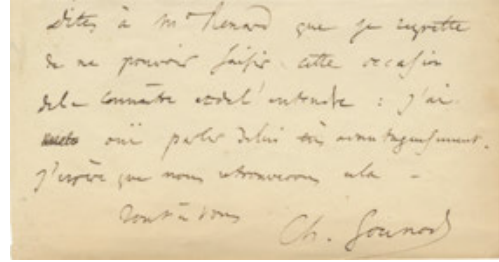 Dites à Mr Renard que je regrette
de ne pouvoir saisir cette occasion
de le connaître et de l'entendre : j'ai
ouï parler de lui très avantageusement.
J'espère que nous retrouverons cela -
Tout à vous
Ch. Gounod